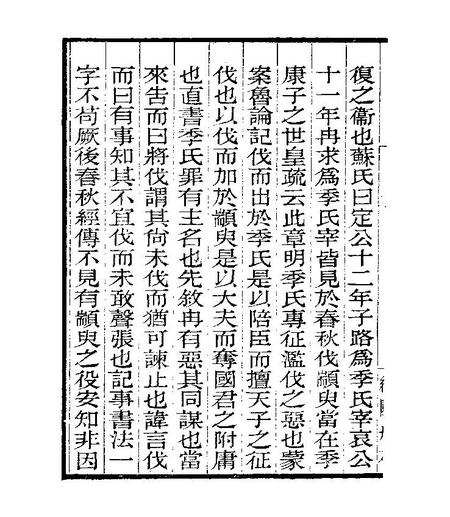 復之衞也蘇氏曰定公十二年子路爲季氏宰哀公
十一年冉求爲季氏宰皆見於春秋伐顓臾當在季
康子之世皇疏云此章明季氏專征濫伐之惡也蒙
案魯論記伐而出於季氏是以陪臣而擅天子之征
伐也以伐而加於顓臾是以大夫而奪國君之附庸
也直書季氏罪有主名也先敘冉有惡其同謀也當
來告而曰將伐謂其尙未伐而猶可諫止也諱言伐
而曰有事知其不宜伐而未敢聲張也記事書法一
字不苟厥後春秋經傳不見有顓臾之役安知非因